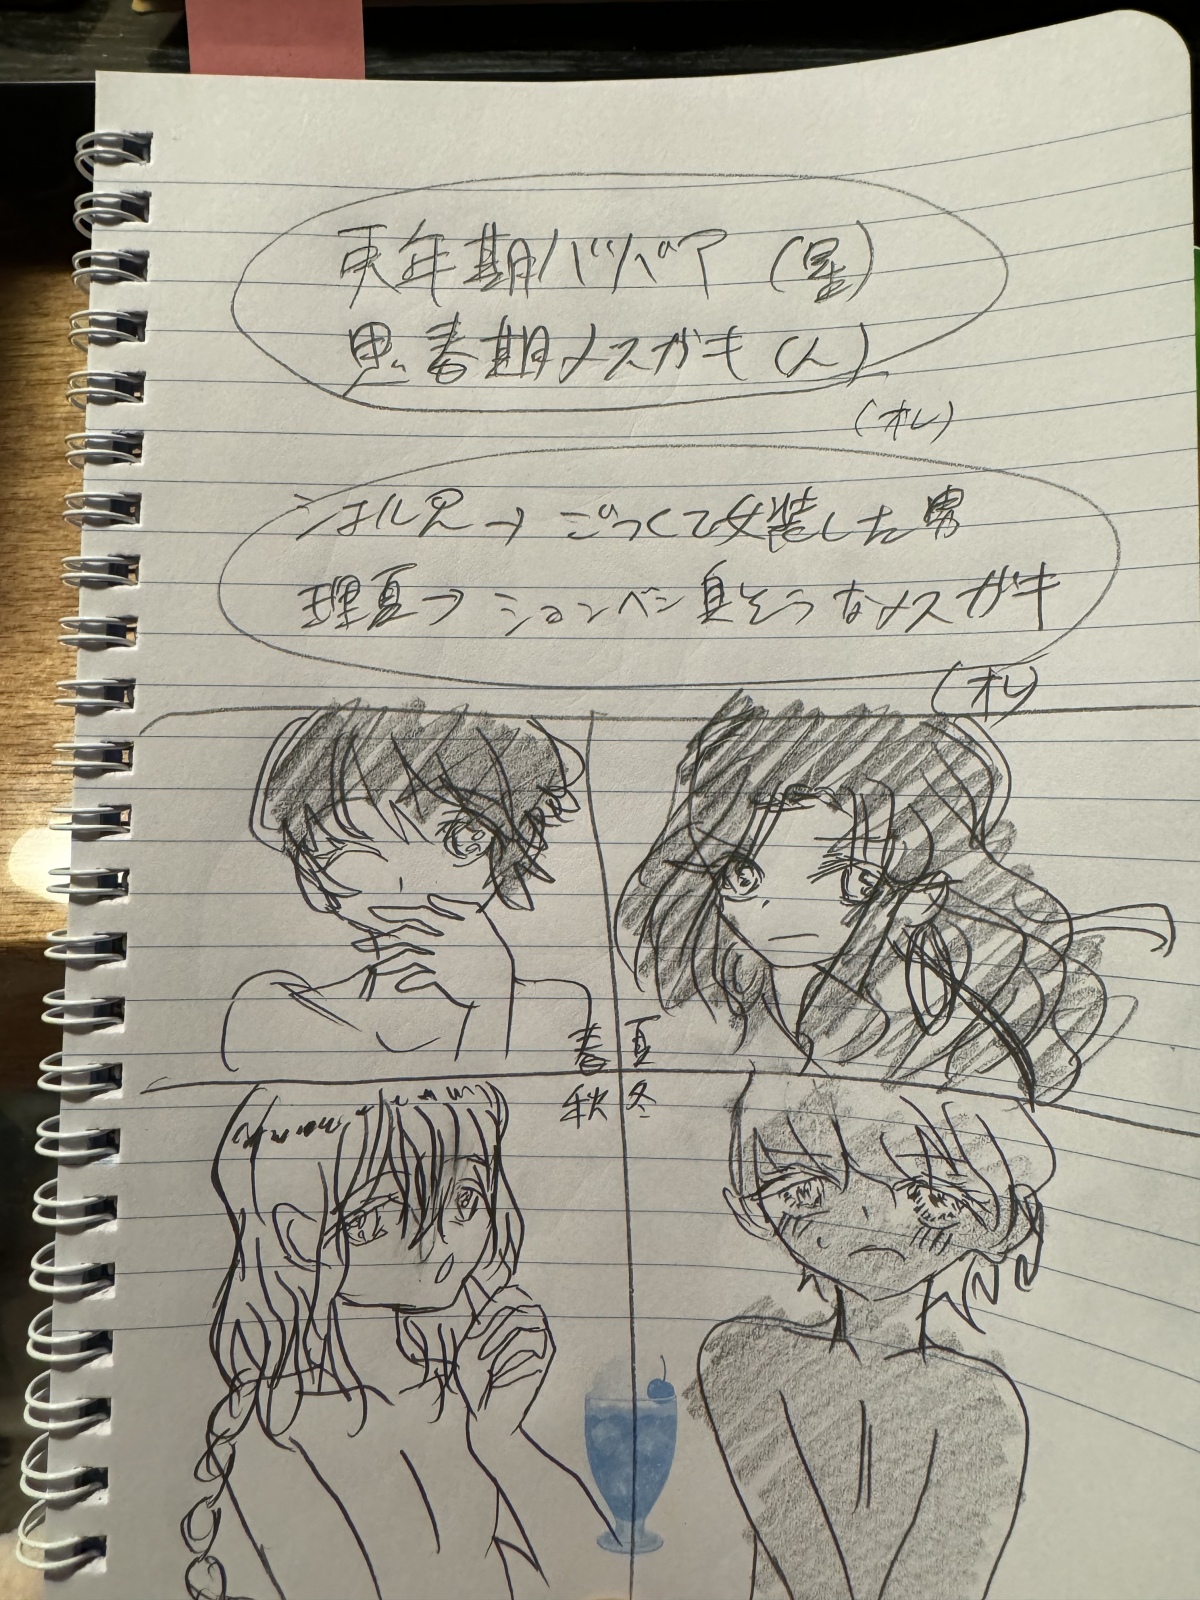 更年期ババア(星)
思春期メスガキ(人)
(オレ)
ごつくて女装した男
理夏→ションベン臭そうなメスガキ
(オレ)
春 夏
秋 冬